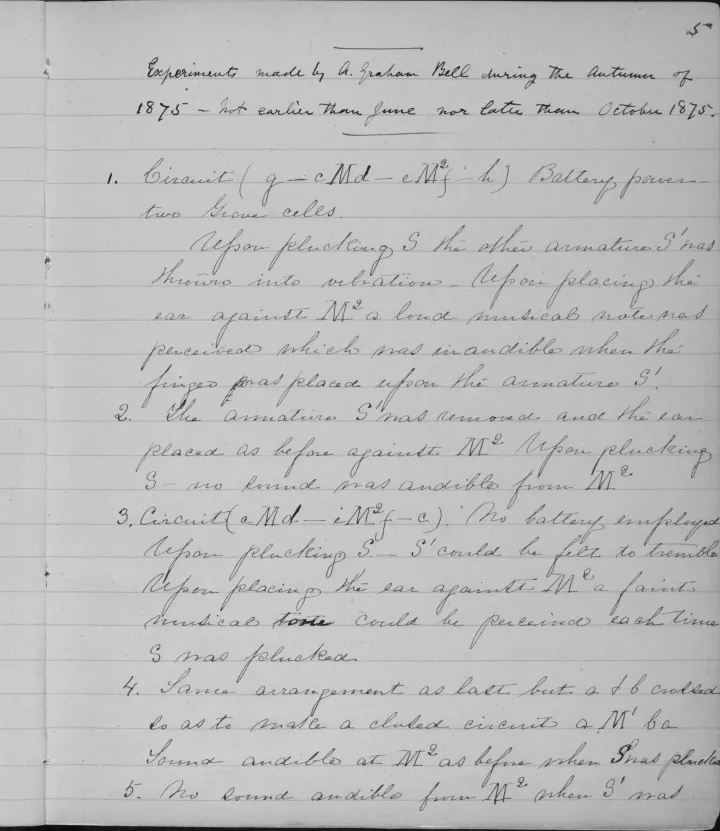 5
Experiments made by A. Graham Bell during the Autumn of
1875 – not earlier than June nor later than October 1875.
1. Circuit ( g – c M d – e M² f – h ) Battery power
two Grove cells.
Upon plucking S the other armature S' was
thrown into vibration – Upon placing the
ear against M² a loud musical note was
perceived which was inaudible when the
finger was placed upon the armature S'.
2. The armature S' was removed and the ear
placed as before against M² Upon plucking
S – no sound was audible from M²
3. Circuit ( c M d – e M² f – c ). No battery employed
Upon plucking S – S' could be felt to tremble
Upon placing the ear against M² a faint
musical tone could be perceived each time
S was plucked
4. Same arrangement as last but a & b crossed
so as to make a closed circuit a M' b a
Sound audible at M² as before when S was plucked
5. No sound audible from M² when S' was